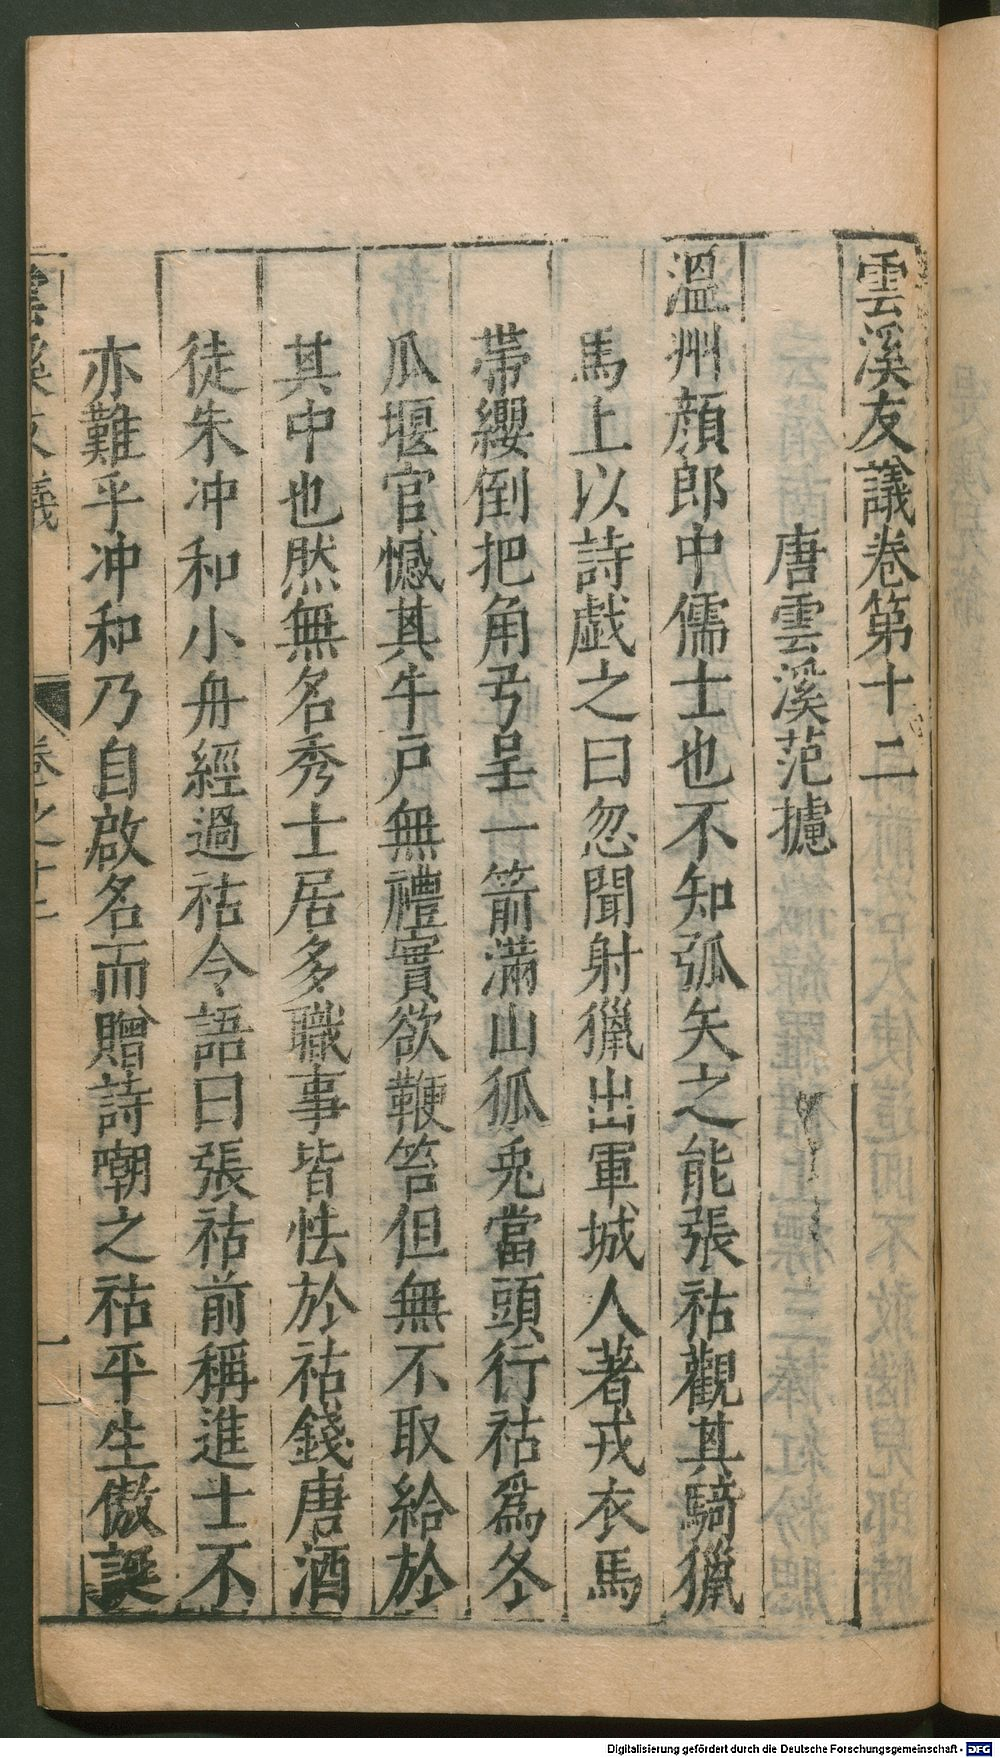 雲溪友議卷第十二
唐雲溪范攄
溫州顔郎中儒士也不知弧矢之能張祜觀其騎獵
馬上以詩戯之曰忽聞射獵出軍城人著戎衣馬
帶纓倒把角弓呈一箭滿山狐兎當頭行祜爲冬
瓜堰官憾其牛戸無禮實欲鞭笞但無不取給於
其中也然無名秀士居多職事皆怯於祜錢唐酒
徒朱冲和小舟經過祜令語曰張祜前稱進士不
亦難乎冲和乃自啟名而贈詩嘲之祜平生傲誕
雲溪友議
卷之十二
一
Digitalisierung gefördert durch die Deutsche Forschungsgemeinschaft - DFG